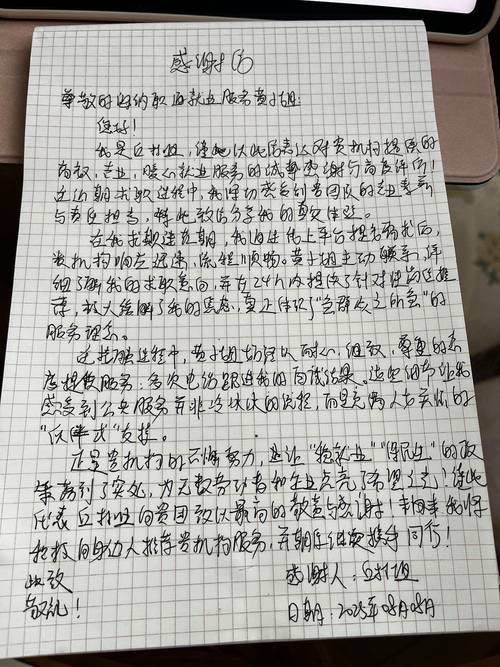 感谢信
尊敬的海纳职通就业服务黄小姐:
您好!
我是丘，谨此以此信表达对贵机构提供的
高效、专业、暖心就业服务的诚挚感谢与高度评价!
在近期求职过程中,我深切感受到贵团队的专业素养
与责任担当,特此致信分享我的真实体验。
在我求职迷茫期,我通过线上平台提交需求后,
贵机构响应迅速,流程顺畅。黄小姐主动联系,详
细了解我的求职意向,并在24h内提供了针对性岗位推
荐,极大缓解了我的焦虑,真正体现了"急群众之所急"的
服务理念。
过程中,黄小姐始终以耐心、细致、尊重的态
度提供服务,多次电话跟进我的面试结果。这些细节让我
感受到公共服务并非冷冰冰的流程,而是充满人文关怀的
"伙伴式"支持。
正是贵机构的不懈努力,让"稳就业""保民生"的政
策落到了实处,为无数劳动者和企业点亮了希望之灯!谨此
代表丘向贵团致以最高的敬意与感谢!未来我将
积极向身边人推荐贵机构服务,并期待继续携手同行!
此致
敬礼!
感谢人:丘
日期:2025年08月08日